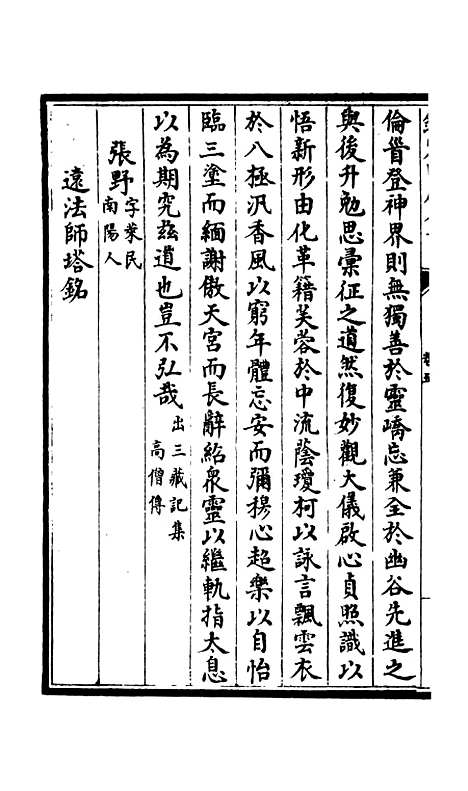 倫首登神界則無獨善於靈嶠忘兼全於幽谷先進之
與後升勉思彙征之道然復妙觀大儀啟心貞照識以
悟新形由化革籍芙蓉於中流蔭瓊柯以詠言飄雲衣
於八極汎香風以窮年體忘安而彌穆心超樂以自怡
臨三塗而緬謝傲天宮而長辭紹衆靈以繼軌指太息
以為期究茲道也豈不弘哉
出三藏記集
高僧傳
張野
字萊民
南陽人
遠法師塔銘